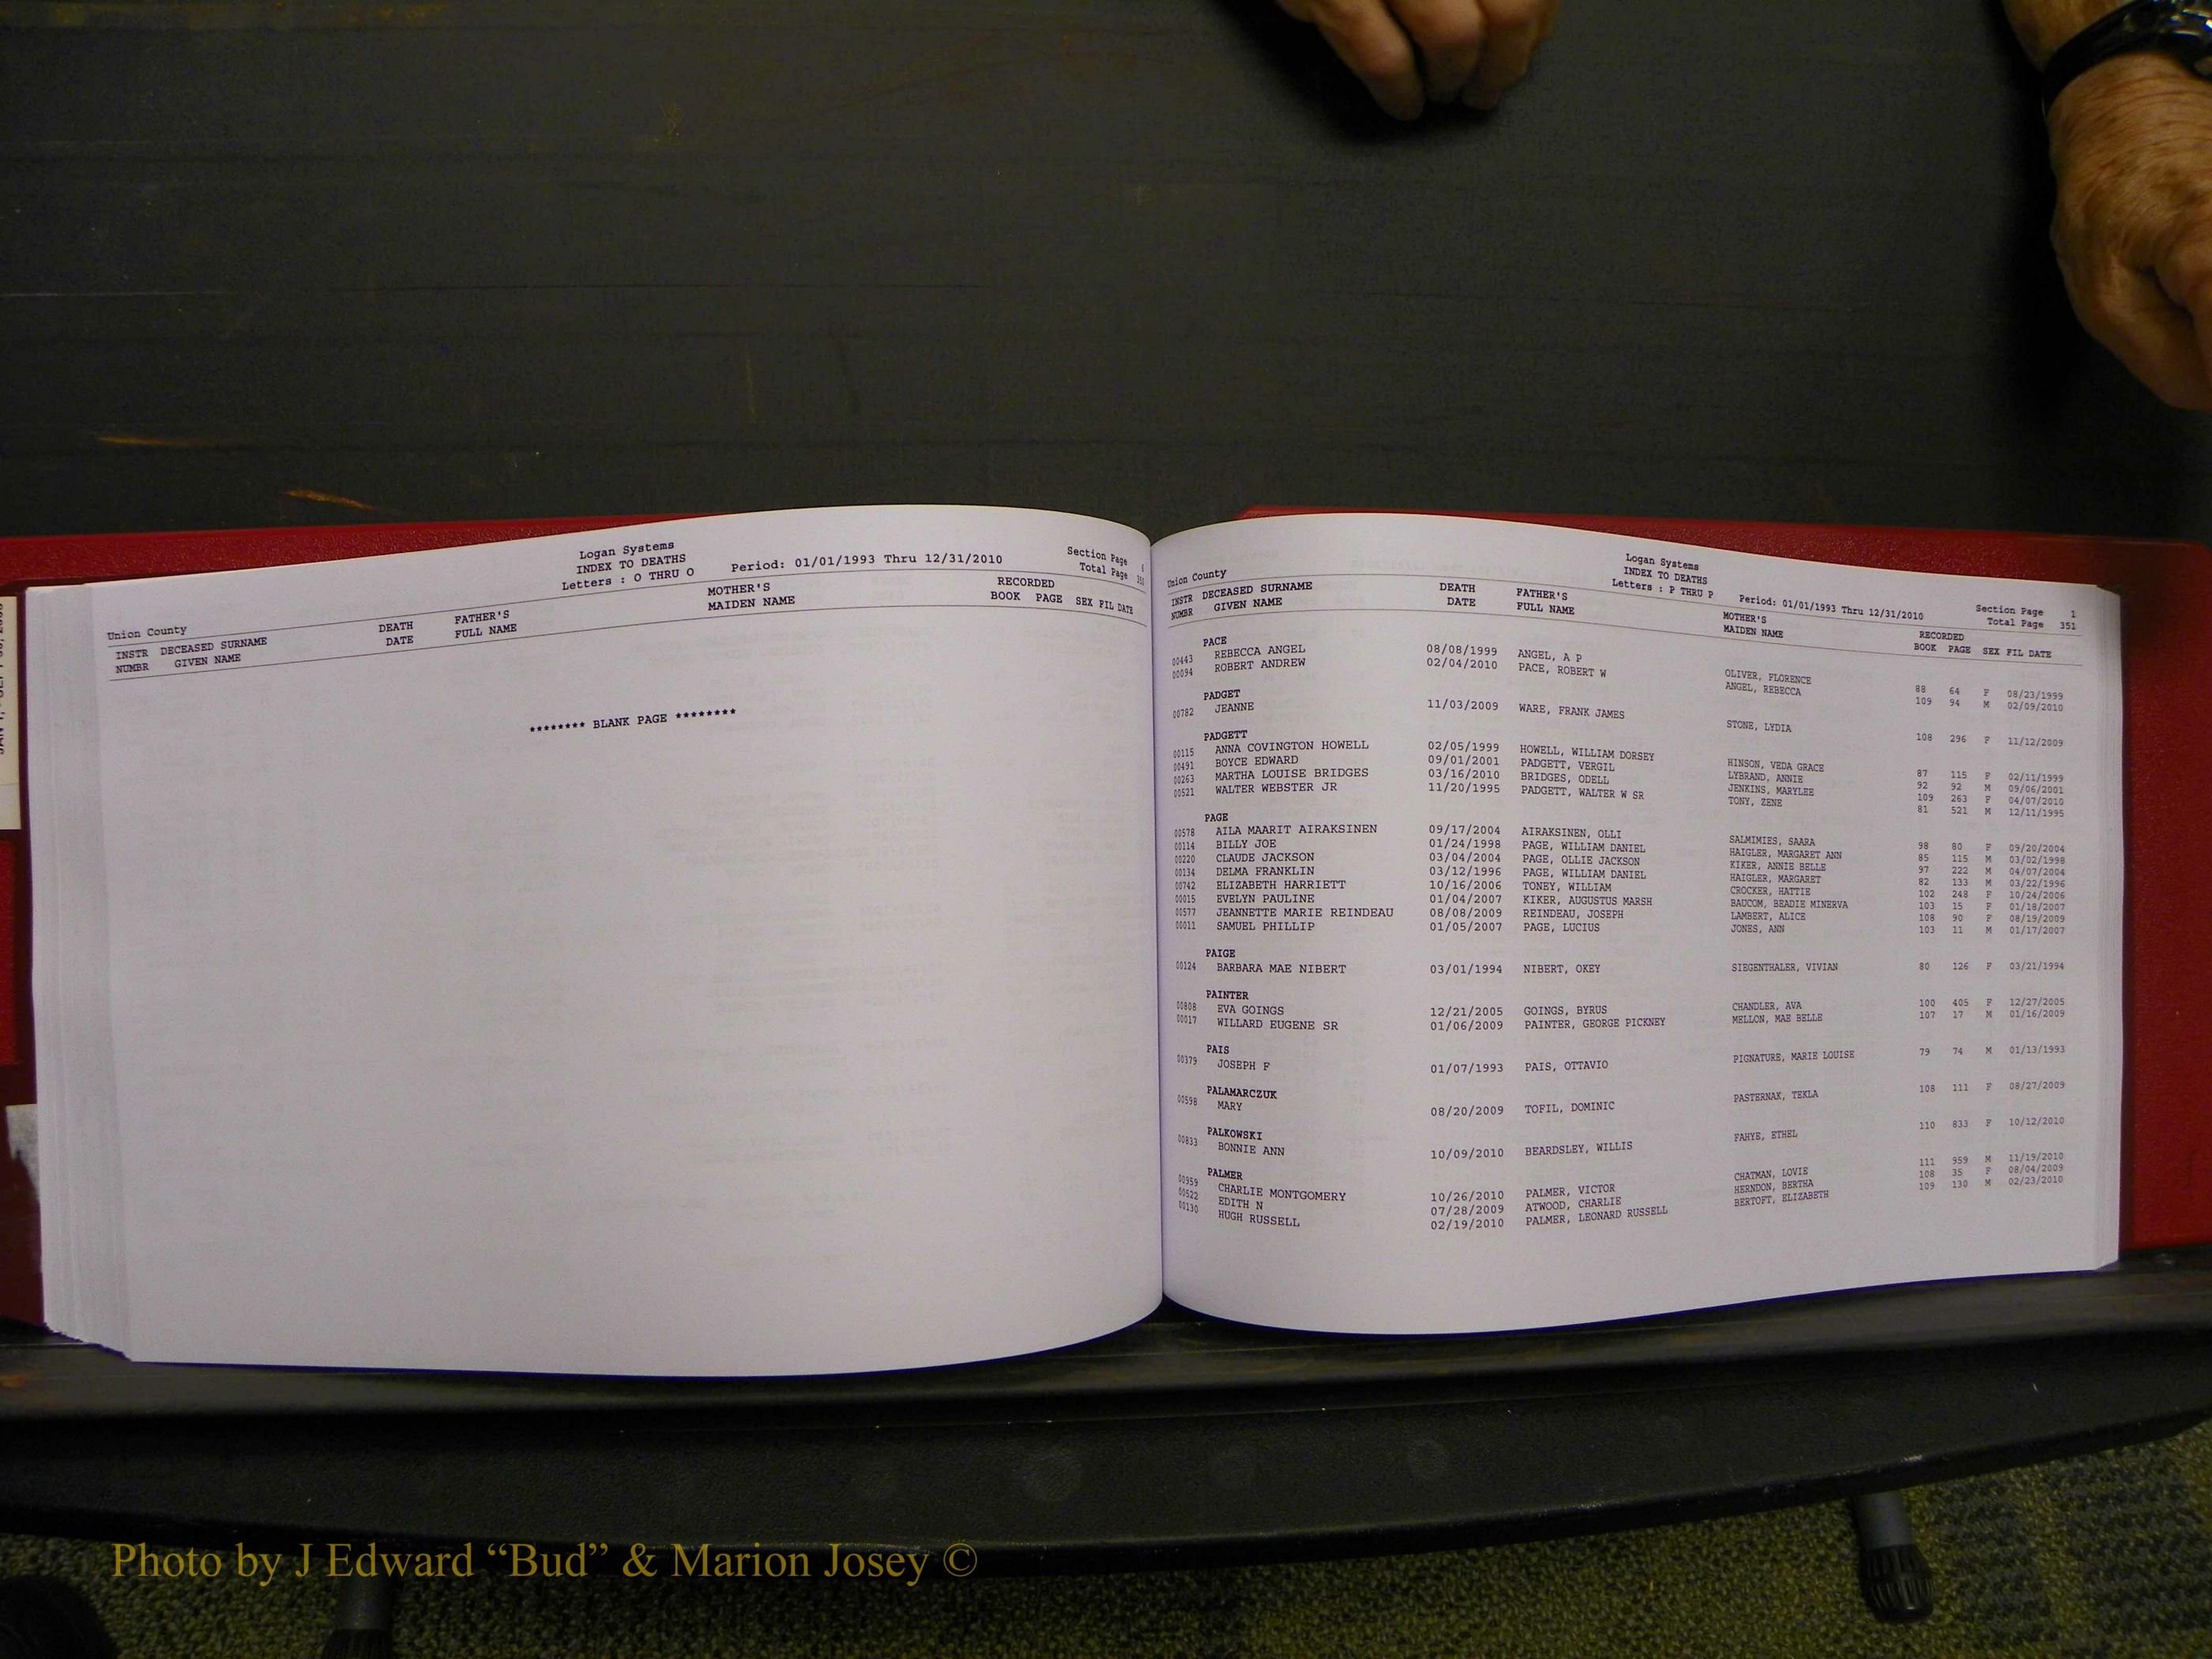 Logan Systems
INDEX TO DEATHS
Letters : O THRU O Period: 01/01/1993 Thru 12/31/2010
Section Page 6
Total Page 350
Union County
INSTR DECEASED SURNAME DEATH FATHER'S MOTHER'S RECORDED
NUMBR GIVEN NAME DATE FULL NAME MAIDEN NAME BOOK PAGE SEX FIL DATE
******** BLANK PAGE ********
Logan Systems
INDEX TO DEATHS
Letters : P THRU P Period: 01/01/1993 Thru 12/31/2010
Section Page 1
Total Page 351
Union County
INSTR DECEASED SURNAME DEATH FATHER'S MOTHER'S RECORDED
NUMBR GIVEN NAME DATE FULL NAME MAIDEN NAME BOOK PAGE SEX FIL DATE
PACE
00443 REBECCA ANGEL 08/08/1999 ANGEL, A P OLIVER, FLORENCE 88 64 F 08/23/1999
00094 ROBERT ANDREW 02/04/2010 PACE, ROBERT W ANGEL, REBECCA 109 94 M 02/09/2010
PADGET
00782 JEANNE 11/03/2009 WARE, FRANK JAMES STONE, LYDIA 108 296 F 11/12/2009
PADGETT
00115 ANNA COVINGTON HOWELL 02/05/1999 HOWELL, WILLIAM DORSEY HINSON, VEDA GRACE 87 115 F 02/11/1999
00491 BOYCE EDWARD 09/01/2001 PADGETT, VERGIL LYBRAND, ANNIE 92 92 M 09/06/2001
00263 MARTHA LOUISE BRIDGES 03/16/2010 BRIDGES, ODELL JENKINS, MARYLEE 109 263 F 04/07/2010
00521 WALTER WEBSTER JR 11/20/1995 PADGETT, WALTER W SR TONY, ZENE 81 521 M 12/11/1995
PAGE
00578 AILA MAARIT AIRAKSINEN 09/17/2004 AIRAKSINEN, OLLI SALMIMIES, SAARA 98 80 F 09/20/2004
00114 BILLY JOE 01/24/1998 PAGE, WILLIAM DANIEL HAIGLER, MARGARET ANN 85 115 M 03/02/1998
00220 CLAUDE JACKSON 03/04/2004 PAGE, OLLIE JACKSON KIKER, ANNIE BELLE 97 222 M 04/07/2004
00134 DELMA FRANKLIN 03/12/1996 PAGE, WILLIAM DANIEL HAIGLER, MARGARET 82 133 M 03/22/1996
00742 ELIZABETH HARRIETT 10/16/2006 TONEY, WILLIAM CROCKER, HATTIE 102 248 F 10/24/2006
00015 EVELYN PAULINE 01/04/2007 KIKER, AUGUSTUS MARSH BAUCOM, BEADIE MINERVA 103 15 F 01/18/2007
00577 JEANNETTE MARIE REINDEAU 08/08/2009 REINDEAU, JOSEPH LAMBERT, ALICE 108 90 F 08/19/2009
00011 SAMUEL PHILLIP 01/05/2007 PAGE, LUCIUS JONES, ANN 103 11 M 01/17/2007
PAIGE
00124 BARBARA MAE NIBERT 03/01/1994 NIBERT, OKEY SIEGENTHALER, VIVIAN 80 126 F 03/21/1994
PAINTER
00808 EVA GOINGS 12/21/2005 GOINGS, BYRUS CHANDLER, AVA 100 405 F 12/27/2005
00017 WILLARD EUGENE SR 01/06/2009 PAINTER, GEORGE PICKNEY MELLON, MAE BELLE 107 17 M 01/16/2009
PAIS
00379 JOSEPH F 01/07/1993 PAIS, OTTAVIO PIGNATURE, MARIE LOUISE 79 74 M 01/13/1993
PALAMARCZUK
00598 MARY 08/20/2009 TOFIL, DOMINIC PASTERNAK, TEKLA 108 111 F 08/27/2009
PALKOWSKI
00833 BONNIE ANN 10/09/2010 BEARDSLEY, WILLIS FAHYE, ETHEL 110 833 F 10/12/2010
PALMER
00959 CHARLIE MONTGOMERY 10/26/2010 PALMER, VICTOR CHATMAN, LOVIE 111 959 M 11/19/2010
00522 EDITH N 07/28/2009 ATWOOD, CHARLIE HERNDON, BERTHA 108 35 F 08/04/2009
00130 HUGH RUSSELL 02/19/2010 PALMER, LEONARD RUSSELL BERTOFT, ELIZABETH 109 130 M 02/23/2010
Photo by J Edward “Bud” & Marion Josey ©